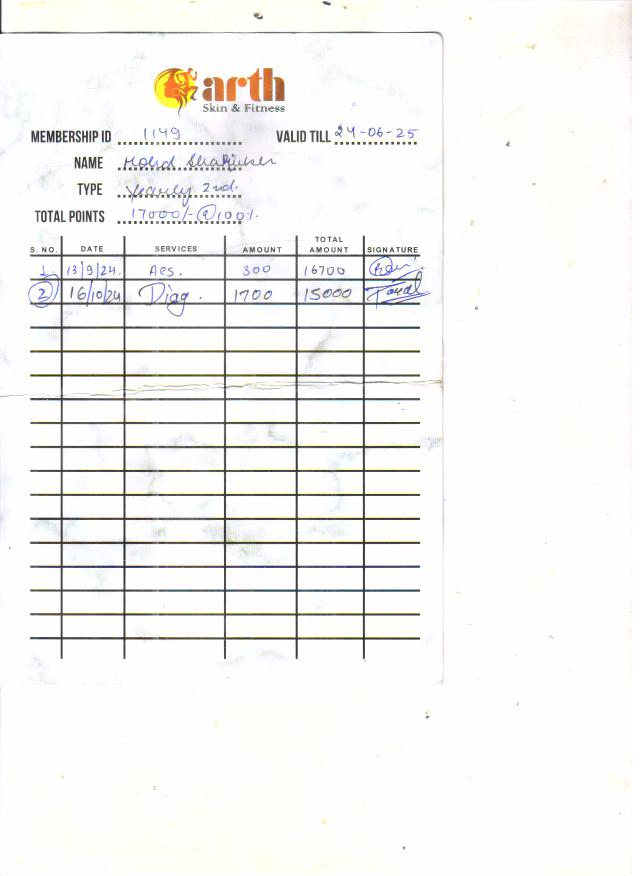 arth
Skin & Fitness
MEMBERSHIP ID 1149 VALID TILL 24-06-25
NAME Mohd
TYPE Yearly 2nd.
TOTAL POINTS 17000/- @100%.
S. NO. DATE SERVICES AMOUNT TOTAL AMOUNT SIGNATURE
1. 13/9/24. Aes. 300 16700
2 16/10/24 Diag. 1700 15000